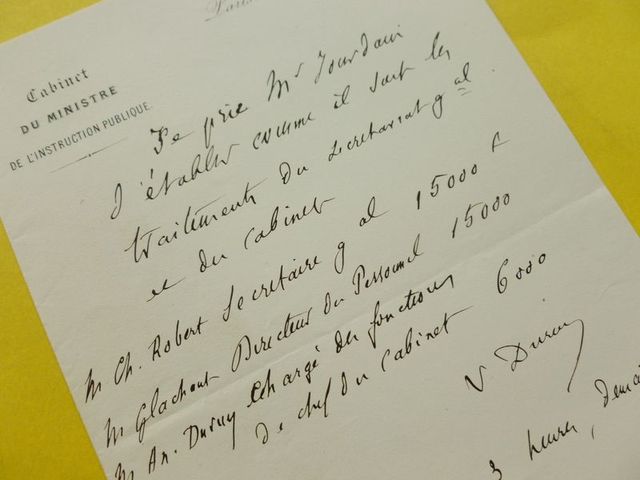 Paris
Cabinet
DU MINISTRE
DE L'INSTRUCTION PUBLIQUE.
Je prie Mr Jourdain
d'établir comme il suit les
traitements du secrétariat gal
et du cabinet
M Ch. Robert Secrétaire gal 15000 f
M Glachant Directeur du Personnel 15000
M An. Duruy Chargé des fonctions
de chef du Cabinet 6000
V Duruy
3 heures,